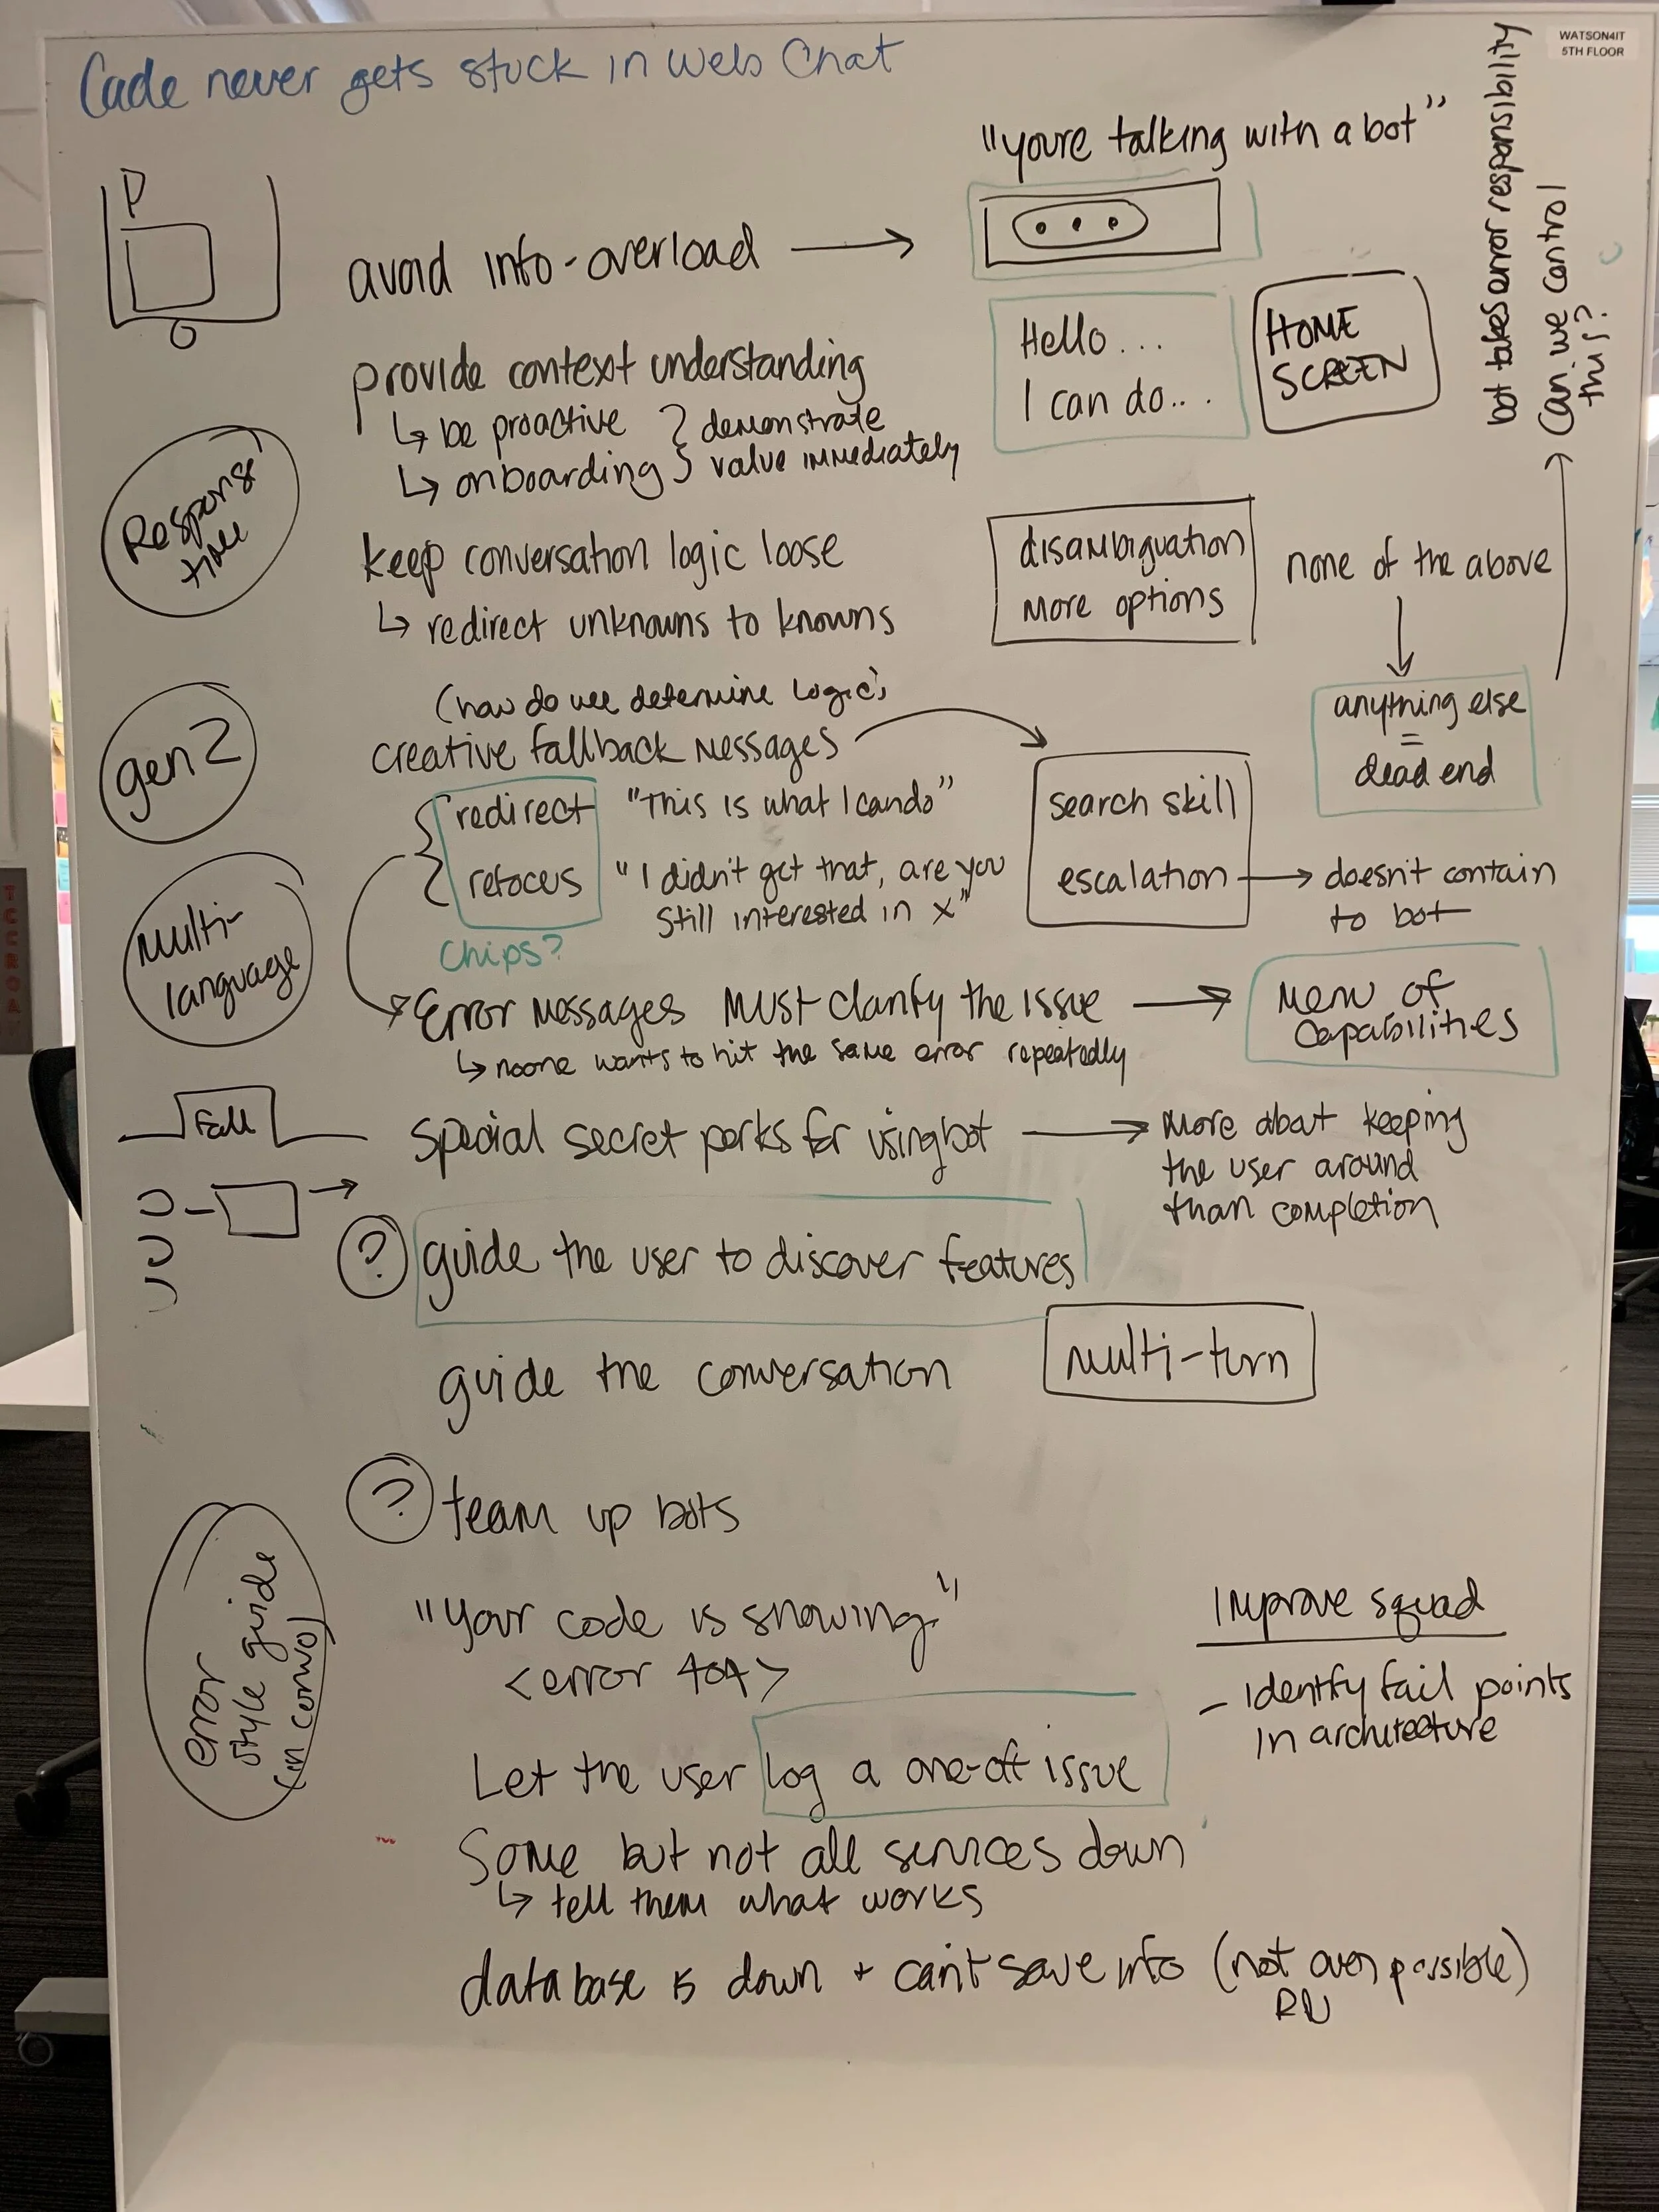 WATSON4IT
5TH FLOOR
Cade never gets stuck in Web Chat
bot takes error responsibility
Can we control
this?
"youre talking with a bot"
P
avoid info-overload
Hello...
I can do...
HOME
SCREEN
provide context understanding
be proactive
onboarding
demonstrate
value immediately
Response
time
keep conversation logic loose
redirect unknowns to knowns
disambiguation
more options
none of the above
anything else
=
dead end
gen 2
(how do we determine logic)
creative fallback messages
redirect "This is what I can do"
refocus "I didn't get that, are you
still interested in x"
Chips?
search skill
escalation
doesn't contain
to bot
Multi-
language
Error messages must clarify the issue
noone wants to hit the same error repeatedly
Menu of
Capabilities
Fall
special secret perks for using bot
more about keeping
the user around
than completion
? guide the user to discover features
guide the conversation
multi-turn
? team up bots
error
style guide
(in convo)
"Your code is showing."
<error 404>
Improve squad
- Identify fail points
in architecture
Let the user log a one-off issue
Some but not all services down
tell them what works
database is down + can't save info (not even possible)
RN